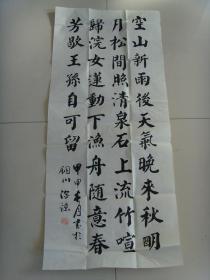 空山新雨後天氣晚來秋明
月松間照清泉石上流竹喧
歸浣女蓮動下漁舟隨意春
芳歇王孫自可留
甲申月書於
銅川